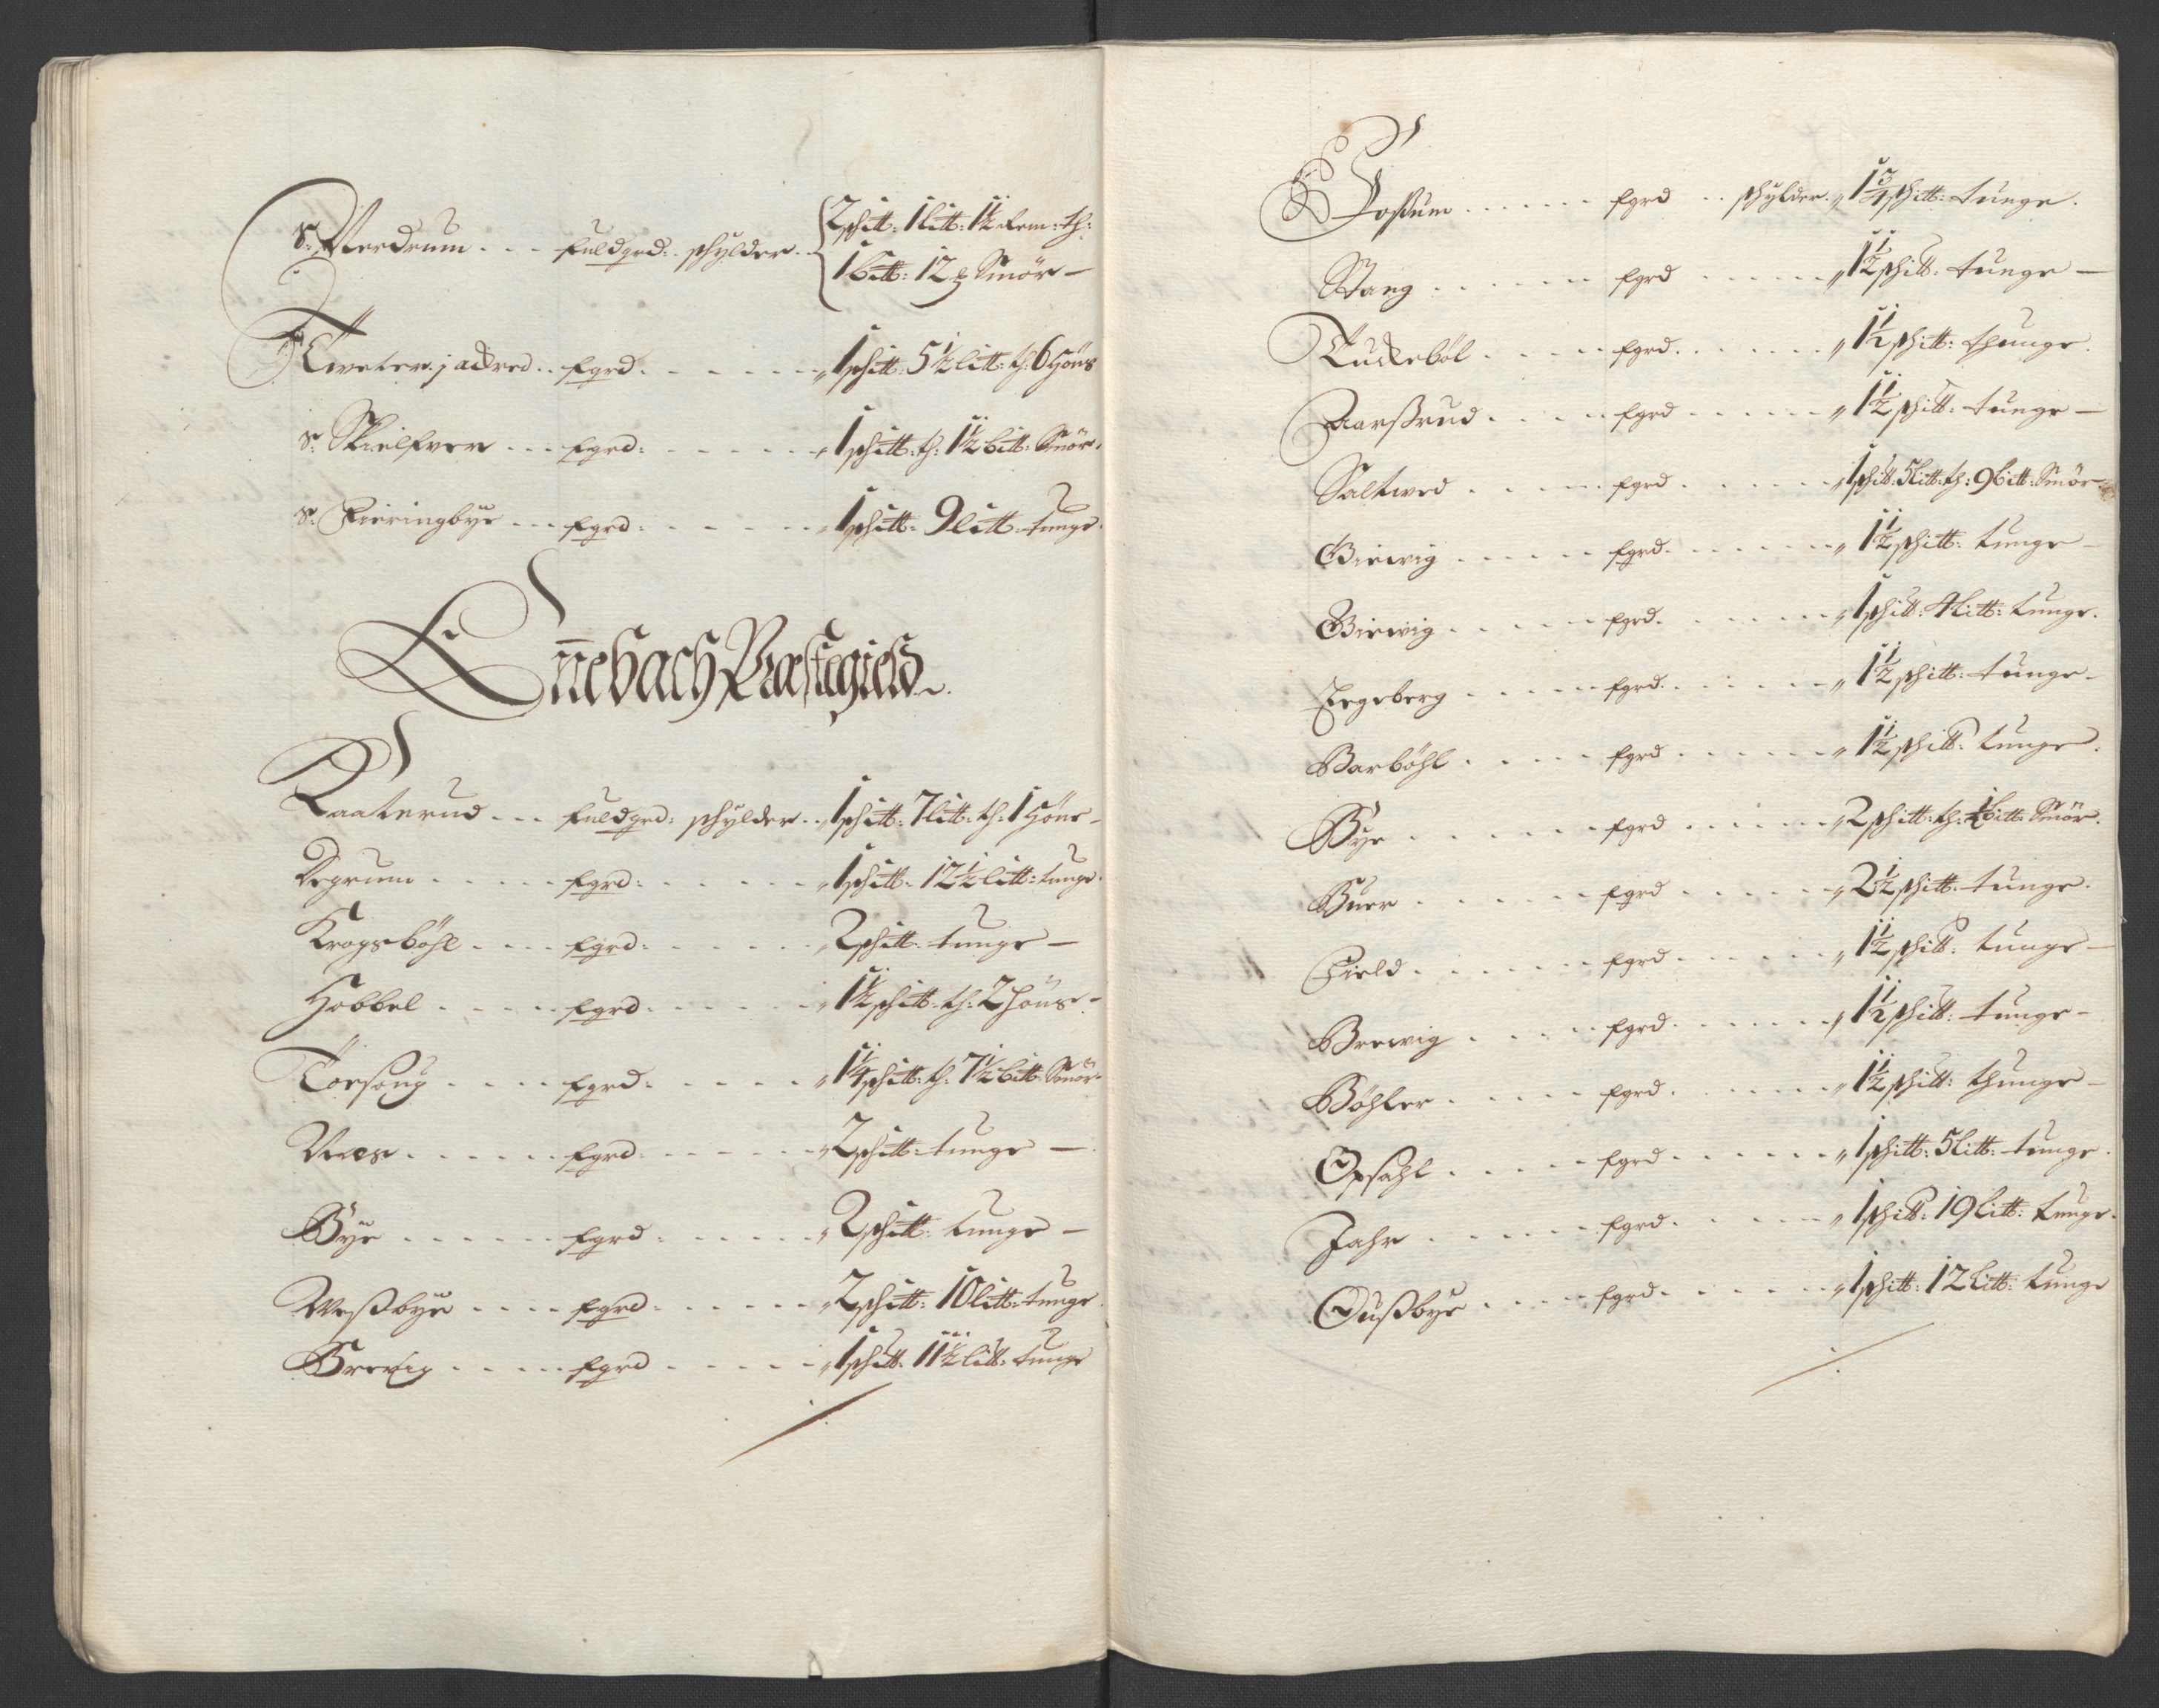 S: Nerdrum . . . fuldgrd: schylder . . 2 schitt: 1 litt: 1½ rem: th:
1 bitt: 12 ȝ Smör —
Tweter j ackred . . fgrd: . . . . . „ 1 schitt: 5½ litt: th: 6 Höns
S: Skielfver . . . fgrd: . . . . . „ 1 schitt: th: 1½ bitt: Smör.
S: Fieringbye . . . fgrd: . . . . . „ 1 schitt: 9 litt: tunge.
Ennebach Præstegield
Raaterud . . . fuldgrd: schylder . . „ 1 schitt: 7 litt: th: 1 Höns –
Degrum . . . . . fgrd: . . . . . „ 1 schitt: 12½ litt: tunge.
Krogsböhl . . . . fgrd: . . . . . „ 2 schitt: tunge —
Hobbel . . . . . fgrd: . . . . . „ 1½ schitt: th: 2 höns –
Torsong . . . . fgrd: . . . . „ 1¼ schitt: th: 7½ bitt: Smör
Nees . . . . . . fgrd: . . . . . . „ 2 schitt: tunge —
Bye . . . . . . fgrd: . . . . . „ 2 schitt: tunge —
Weßbye . . . . fgrd: . . . . . „ 2 schitt: 10 litt: tunge.
Brevig . . . . . fgrd . . . . . „ 1 schitt: 11½ litt: tunge
Foßum . . . . . . fgrd . . schylder. „ 1¾ schitt: tunge.
Stang . . . . . . fgrd . . . . . „ 1½ schitt: tunge —
Tuckeböl . . . . . fgrd. . . . . . „ 1½ schitt: thunge.
Aarßrud . . . . . fgrd . . . . . „ 1½ schitt: tunge —
Saltwed . . . . . fgrd . . . . . „ 1 schitt: 5 litt: th: 9 bitt: Smör
Girwig . . . . . . fgrd. . . . . . „ 1½ schitt: tunge –
Girwig . . . . . fgrd. . . . . . „ 1 schitt: 4 litt: tunge.
Tegeberg . . . . . fgrd. . . . . . „ 1½ schitt: tunge –
Barböhl . . . . . fgrd . . . . . „ 1½ schitt: tunge.
Bye . . . . . . fgrd . . . . . „ 2 schitt: th: 1 bitt: Smör.
Buer . . . . . . fgrd . . . . . „ 2½ schitt: tunge.
Field . . . . . . fgrd . . . . . „ 1½ schitt: tunge —
Brewig . . . . . fgrd . . . . . . „ 1½ schitt: tunge –
Böhler . . . . . fgrd . . . . . „ 1½ schitt: thunge –
Opsahl . . . . . fgrd . . . . . . „ 1 schitt: 5 litt: tunge.
Jahr . . . . . . fgrd . . . . . „ 1 schitt: 19 litt: tunge.
Oußbye . . . . fgrd . . . . . . „ 1 schitt: 12 litt: tunge